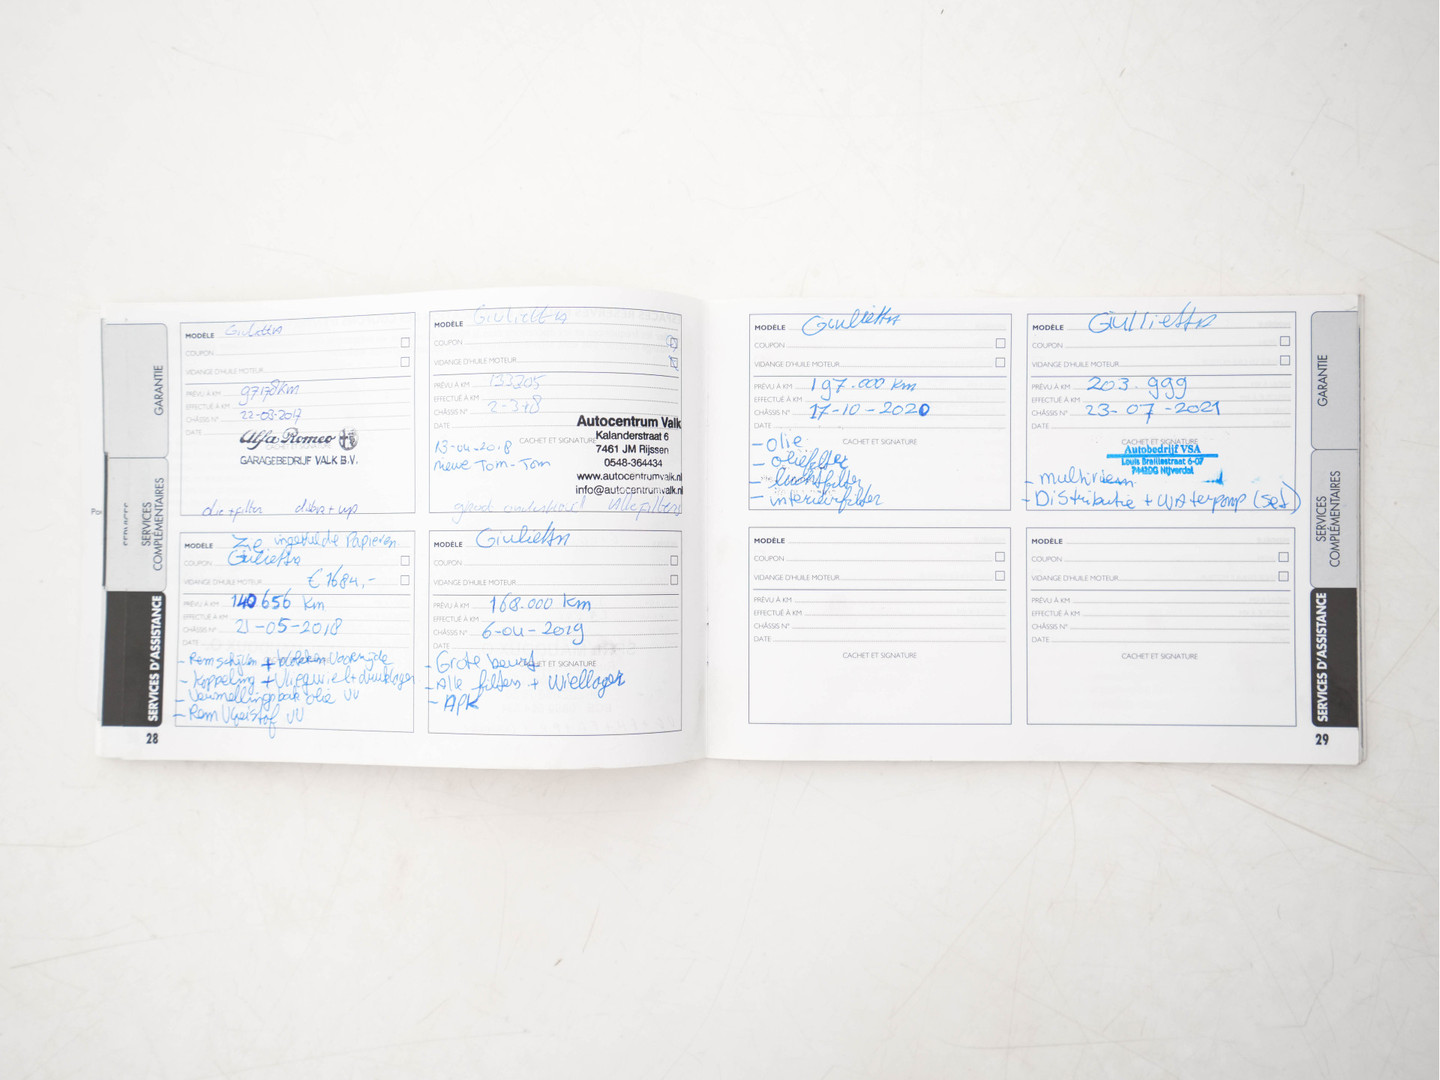 MODÈLE Giulietta
COUPON
VIDANGE D'HUILE MOTEUR
PRÉVU À KM 97178km
EFFECTUÉ À KM
CHÂSSIS N° 22-03-2017
DATE
Alfa Romeo
CACHET ET SIGNATURE
GARAGEBEDRIJF VALK B.V.
olie + filter
MODÈLE Giulietta
COUPON
VIDANGE D'HUILE MOTEUR
PRÉVU À KM 133305
EFFECTUÉ À KM
CHÂSSIS N°
DATE
13-04-2018
nieuwe Tom-Tom
CACHET ET SIGNATURE
Autocentrum Valk
Kalanderstraat 6
7461 JM Rijssen
0548-364434
www.autocentrumvalk.nl
info@autocentrumvalk.nl
groot onderhoud Alle filters
MODÈLE Zie ingevulde Papieren
COUPON Giulietta
VIDANGE D'HUILE MOTEUR € 1684,-
PRÉVU À KM 140656 Km
EFFECTUÉ À KM
CHÂSSIS N° 21-05-2018
DATE
- Remschijven + blokken Voorzijde
- Koppeling + Vliegwiel + druklager
- Versnellingsbak olie VV
- Rem Vloeistof VV
28
MODÈLE Giulietta
COUPON
VIDANGE D'HUILE MOTEUR
PRÉVU À KM 168.000 km
EFFECTUÉ À KM
CHÂSSIS N° 6-04-2019
DATE
CACHET ET SIGNATURE
- Grote beurt
- Alle filters + Wiellager
- APK
GARANTIE
SERVICES COMPLÉMENTAIRES
SERVICES D'ASSISTANCE
MODÈLE Giulietta
COUPON
VIDANGE D'HUILE MOTEUR
PRÉVU À KM 197.000 km
EFFECTUÉ À KM
CHÂSSIS N° 17-10-2020
DATE
CACHET ET SIGNATURE
- olie
- oliefilter
- luchtfilter
- interieurfilter
MODÈLE Giullietta
COUPON
VIDANGE D'HUILE MOTEUR
PRÉVU À KM 203.999
EFFECTUÉ À KM
CHÂSSIS N° 23-07-2021
DATE
CACHET ET SIGNATURE
Autobedrijf VSA
Louis Braillestraat 6-07
7442DG Nijverdal
- multiriem
- Distributie + Waterpomp (set)
MODÈLE
COUPON
VIDANGE D'HUILE MOTEUR
PRÉVU À KM
EFFECTUÉ À KM
CHÂSSIS N°
DATE
CACHET ET SIGNATURE
MODÈLE
COUPON
VIDANGE D'HUILE MOTEUR
PRÉVU À KM
EFFECTUÉ À KM
CHÂSSIS N°
DATE
CACHET ET SIGNATURE
GARANTIE
SERVICES COMPLÉMENTAIRES
SERVICES D'ASSISTANCE
29